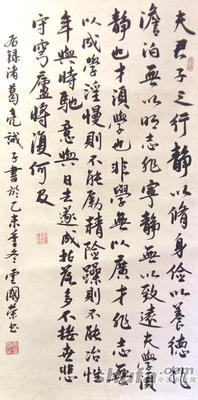 夫君子之行靜以脩身儉以養德非
澹泊無以明志非寧靜無以致遠夫學須
靜也才須學也非學無以廣才非志無
以成學淫慢則不能勵精險躁則不能冶性
年與時馳意與日去遂成枯落多不接世悲
守窮廬將復何及
右錄諸葛亮誡子書於乙未年冬雲國榮書